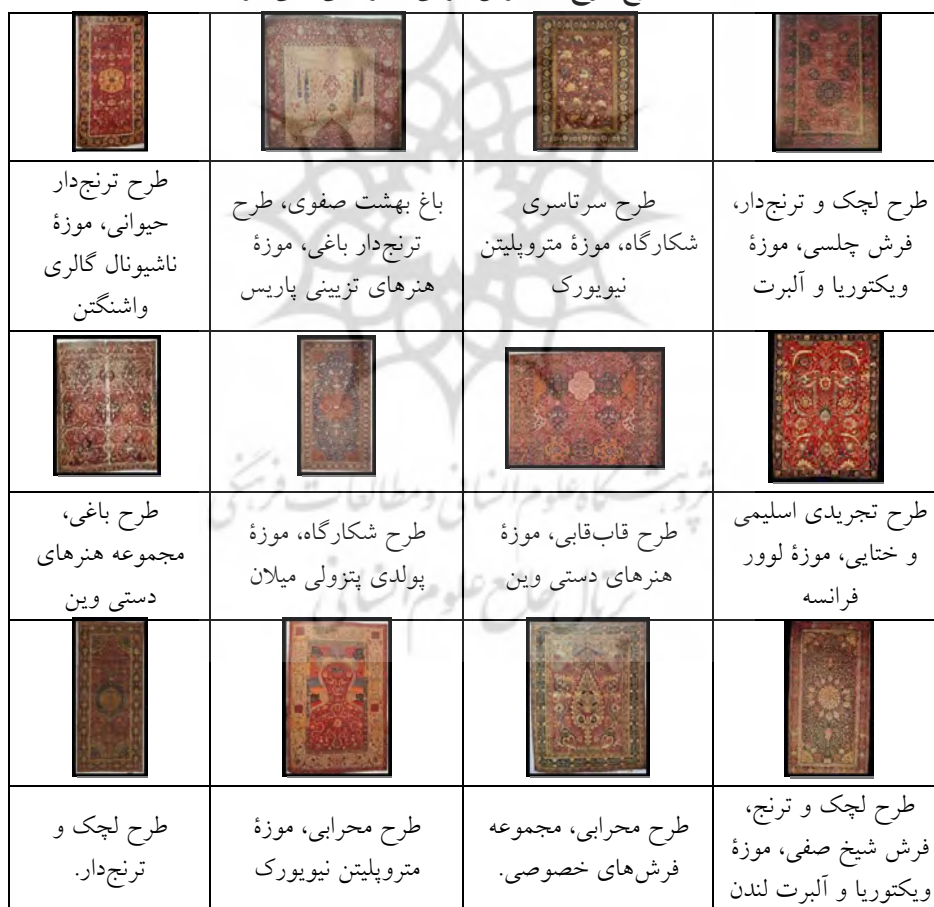 طرح لچک و ترنج‌دار،
فرش چلسی، موزۀ
ویکتوریا و آلبرت
طرح سرتاسری
شکارگاه، موزۀ متروپلیتن
نیویورک
باغ بهشت صفوی، طرح
ترنج‌دار باغی، موزۀ
هنرهای تزیینی پاریس
طرح ترنج‌دار
حیوانی، موزۀ
ناشیونال گالری
واشنگتن
طرح تجریدی اسلیمی
و ختایی، موزۀ لوور
فرانسه
طرح قاب‌قابی، موزۀ
هنرهای دستی وین
طرح شکارگاه، موزۀ
پولدی پتزولی میلان
طرح باغی،
مجموعه هنرهای
دستی وین
پژوهشگاه علوم انسانی و مطالعات فرهنگی
پرتال جامع علوم انسانی
طرح لچک و ترنج،
فرش شیخ صفی، موزۀ
ویکتوریا و آلبرت لندن
طرح محرابی، مجموعه
فرش‌های خصوصی.
طرح محرابی، موزۀ
متروپلیتن نیویورک
طرح لچک و
ترنج‌دار.